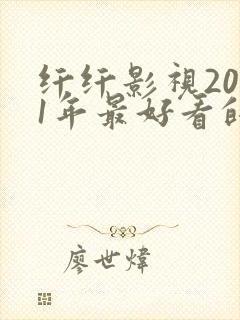 纤纤影視20
1年最好看的
廖世煒